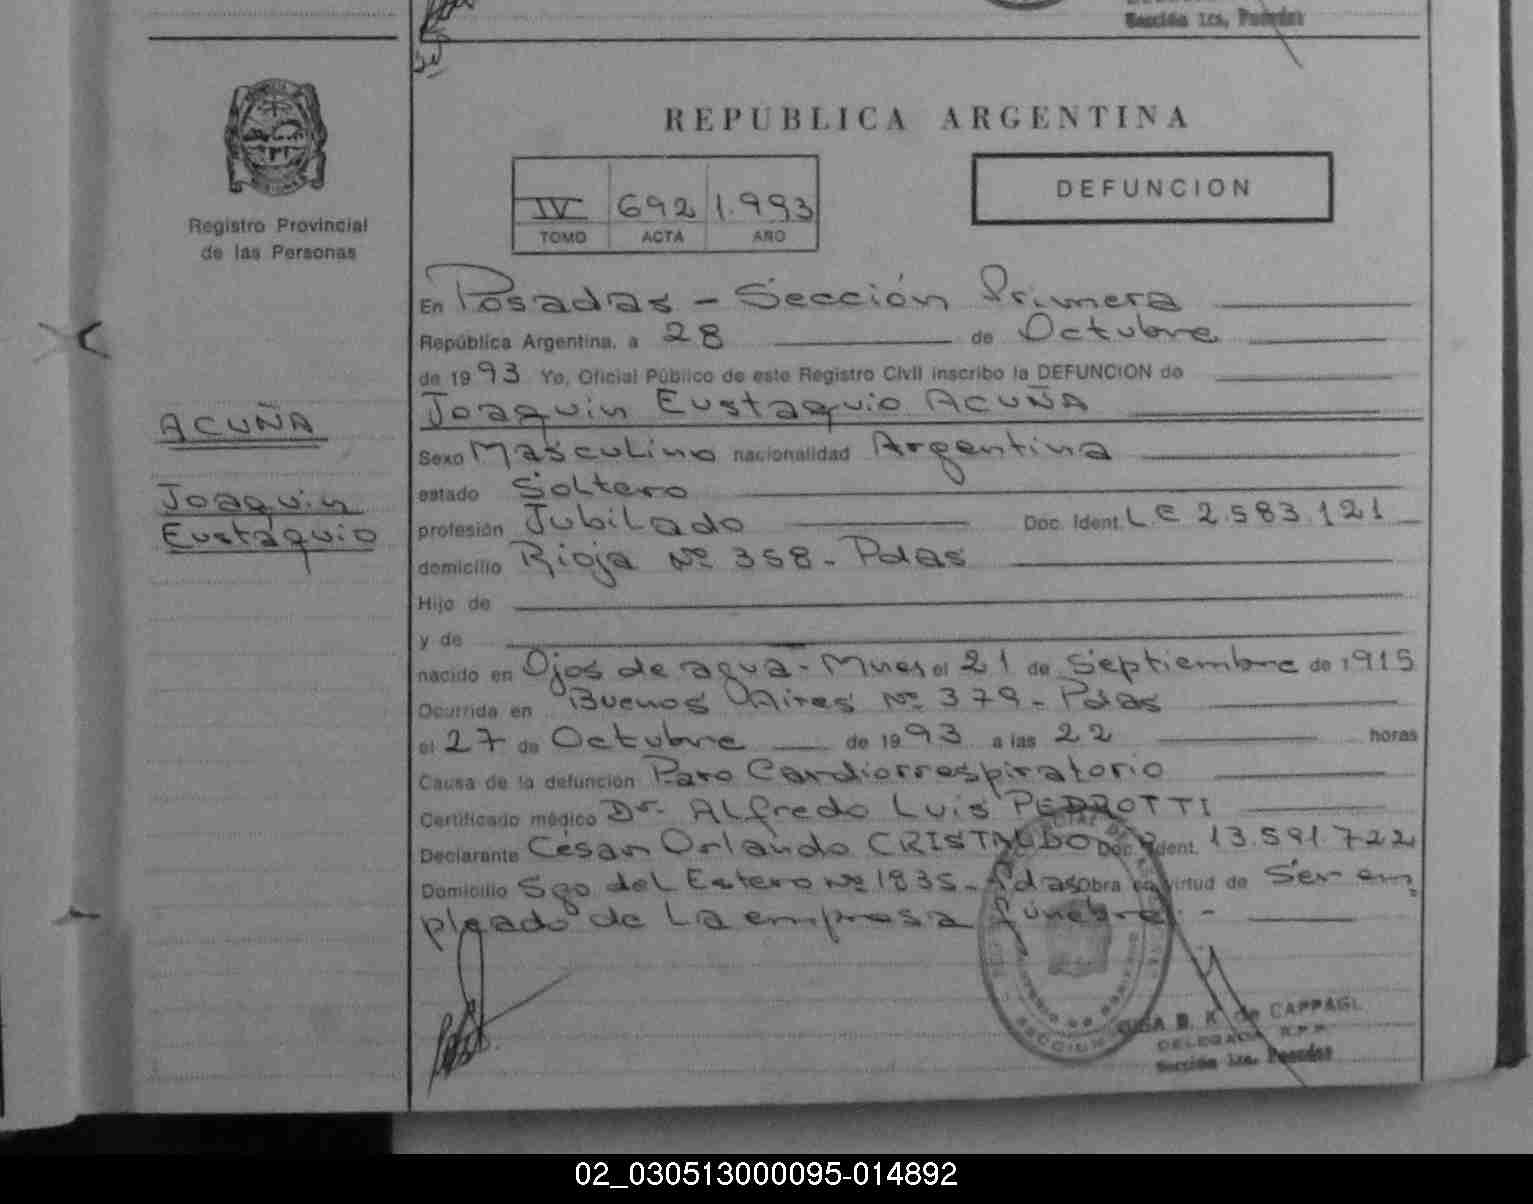 Sección 1ra. Posadas
REPUBLICA ARGENTINA
IV 692 1.993
TOMO ACTA AÑO
DEFUNCION
Registro Provincial
de las Personas
En Posadas - Sección Primera
República Argentina, a 28 de Octubre
de 1993 Yo, Oficial Público de este Registro Civil inscribo la DEFUNCION de
Joaquin Eustaquio ACUÑA
ACUÑA
Joaquin
Eustaquio
Sexo Masculino nacionalidad Argentina
estado Soltero
profesión Jubilado Doc. Ident. L.E 2.583.121
domicilio Rioja Nº 358 - Pdas
Hijo de
y de
nacido en Ojos de agua - Mnes el 21 de Septiembre de 1915
Ocurrida en Buenos Aires Nº 379 - Pdas
el 27 de Octubre de 1993 a las 22 horas
Causa de la defunción Paro Cardiorrespiratorio
Certificado médico Dr. Alfredo Luis PEDROTTI
Declarante César Orlando CRISTALDO Doc. Ident. 13.591.722
Domicilio Sgo del Estero Nº 1835 - Pdas obra en virtud de Ser em
pleado de La empresa fúnebre. -
B. K. de CAPPAGL
DELEGADA R.P.P.
Sección 1ra. Posadas
02_030513000095-014892